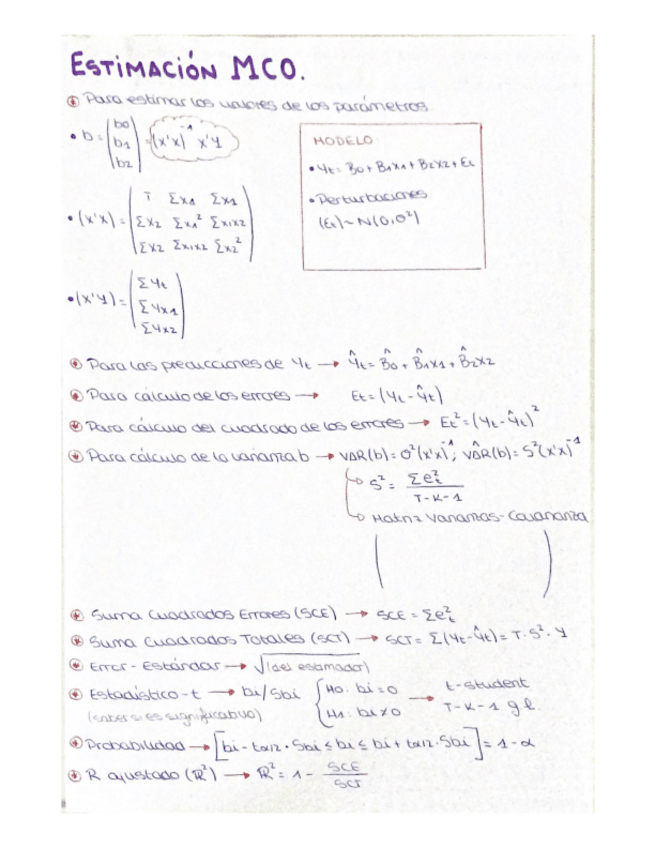 ESTIMACIÓN MCO.
Para estimar los valores de los parámetros.
• b = (b0 b1 b2) = (x'x)⁻¹ x'y
MODELO
• Yt = B0 + B1x1 + B2x2 + Et
• Perturbaciones
(Et) ~ N(0, σ²)
• (x'x) =
T Σx1 Σx1
Σx2 Σx1² Σx1x2
Σx2 Σx1x2 Σx2²
• (x'y) =
ΣYt
ΣYx1
ΣYx2
Para las predicciones de Yt → Ŷt = B̂0 + B̂1x1 + B̂2x2
Para cálculo de los errores → Et = (Yt - Ŷt)
Para cálculo del cuadrado de los errores → Et² = (Yt - Ŷt)²
Para cálculo de la varianza b → VAR(b) = σ²(x'x)⁻¹; VÂR(b) = S²(x'x)⁻¹
S² = Σet² / T-K-1
Matriz Varianzas-Covarianza
Suma Cuadrados Errores (SCE) → SCE = Σet²
Suma Cuadrados Totales (SCT) → SCT = Σ(Yt - Ŷt) = T · S² · Y
Error-Estándar → √(del estimador)
Estadístico-t → bi/Sbi { H0: bi = 0 → t-student
(saber si es significativo) H1: bi ≠ 0 T-K-1 g.l.
Probabilidad → [bi - tα/2 · Sbi ≤ bi ≤ bi + tα/2 · Sbi] = 1 - α
R ajustado (R²) → R² = 1 - SCE / SCT